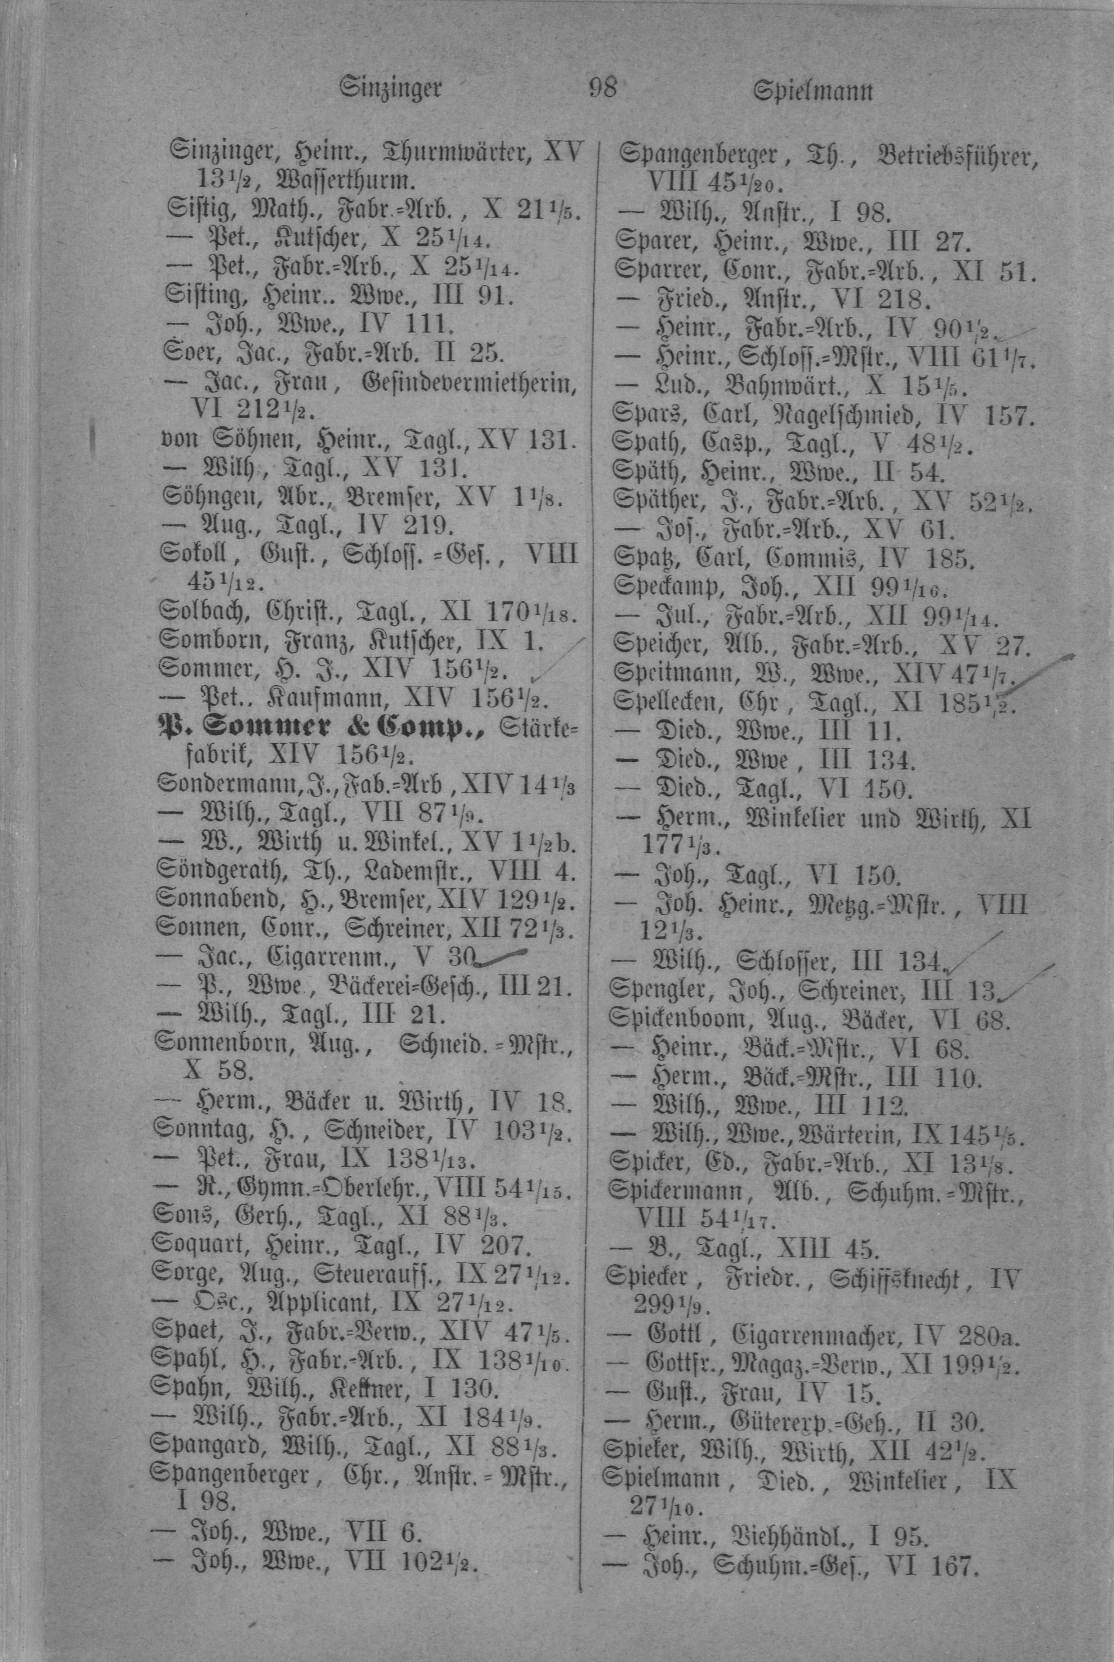 Sinzinger 98 Spielmann
Sinzinger, Heinr., Thurmwärter, XV
13 1/2, Wasserthurm.
Sistig, Math., Fabr.-Arb., X 21 1/5.
— Pet., Kutscher, X 25 1/14.
— Pet., Fabr.-Arb., X 25 1/14.
Sisting, Heinr.. Wwe., III 91.
— Joh., Wwe., IV 111.
Soer, Jac., Fabr.-Arb. II 25.
— Jac., Frau, Gesindevermietherin,
VI 212 1/2.
von Söhnen, Heinr., Tagl., XV 131.
— Wilh, Tagl., XV 131.
Söhngen, Abr., Bremser, XV 1 1/8.
— Aug., Tagl., IV 219.
Sokoll, Gust., Schloss.-Ges., VIII
45 1/12.
Solbach, Christ., Tagl., XI 170 1/18.
Somborn, Franz, Kutscher, IX 1.
Sommer, H. J., XIV 156 1/2.
— Pet.. Kaufmann, XIV 156 1/2.
P. Sommer & Comp., Stärke-
fabrik, XIV 156 1/2.
Sondermann, J., Fab.-Arb, XIV 14 1/3
— Wilh., Tagl., VII 87 1/9.
— W., Wirth u. Winkel., XV 1 1/2 b.
Söndgerath, Th., Lademstr., VIII 4.
Sonnabend, H., Bremser, XIV 129 1/2.
Sonnen, Conr., Schreiner, XII 72 1/3.
— Jac., Cigarrenm., V 30
— P., Wwe, Bäckerei-Gesch., III 21.
— Wilh., Tagl., III 21.
Sonnenborn, Aug., Schneid.-Mstr.,
X 58.
— Herm., Bäcker u. Wirth, IV 18.
Sonntag, H., Schneider, IV 103 1/2.
— Pet., Frau, IX 138 1/13.
— R., Gymn.-Oberlehr., VIII 54 1/15.
Sons, Gerh., Tagl., XI 88 1/3.
Soquart, Heinr., Tagl., IV 207.
Sorge, Aug., Steueraufs., IX 27 1/12.
— Osc., Applicant, IX 27 1/12.
Spaet, J., Fabr.-Verw., XIV 47 1/5.
Spahl, H., Fabr.-Arb., IX 138 1/10.
Spahn, Wilh., Kettner, I 130.
— Wilh., Fabr.-Arb., XI 184 1/9.
Spangard, Wilh., Tagl., XI 88 1/3.
Spangenberger, Chr., Anstr.-Mstr.,
I 98.
— Joh., Wwe., VII 6.
— Joh., Wwe., VII 102 1/2.
Spangenberger, Th., Betriebsführer,
VIII 45 1/20.
— Wilh., Anstr., I 98.
Sparer, Heinr., Wwe., III 27.
Sparrer, Conr., Fabr.-Arb., XI 51.
— Fried., Anstr., VI 218.
— Heinr., Fabr.-Arb., IV 90 1/2.
— Heinr., Schloss.-Mstr., VIII 61 1/7.
— Lud., Bahnwärt., X 15 1/5.
Spars, Carl, Nagelschmied, IV 157.
Spath, Casp., Tagl., V 48 1/2.
Späth, Heinr., Wwe., II 54.
Späther, J., Fabr.-Arb., XV 52 1/2.
— Jos., Fabr.-Arb., XV 61.
Spatz, Carl, Commis, IV 185.
Speckamp, Joh., XII 99 1/16.
— Jul., Fabr.-Arb., XII 99 1/14.
Speicher, Alb., Fabr.-Arb., XV 27.
Speitmann, W., Wwe., XIV 47 1/7.
Spellecken, Chr, Tagl., XI 185 1/2.
— Died., Wwe., III 11.
— Died., Wwe, III 134.
— Died., Tagl., VI 150.
— Herm., Winkelier und Wirth, XI
177 1/3.
— Joh., Tagl., VI 150.
— Joh. Heinr., Metzg.-Mstr., VIII
12 1/3.
— Wilh., Schlosser, III 134.
Spengler, Joh., Schreiner, III 13.
Spickenboom, Aug., Bäcker, VI 68.
— Heinr., Bäck.-Mstr., VI 68.
— Herm., Bäck.-Mstr., III 110.
— Wilh., Wwe., III 112.
— Wilh., Wwe., Wärterin, IX 145 1/5.
Spicker, Ed., Fabr.-Arb., XI 13 1/8.
Spickermann, Alb., Schuhm.-Mstr.,
VIII 54 1/17.
— B., Tagl., XIII 45.
Spiecker, Friedr., Schiffsknecht, IV
299 1/9.
— Gottl, Cigarrenmacher, IV 280a.
— Gottfr., Magaz.-Verw., XI 199 1/2.
— Gust., Frau, IV 15.
— Herm., Güterexp.-Geh., II 30.
Spieker, Wilh., Wirth, XII 42 1/2.
Spielmann, Died., Winkelier, IX
27 1/10.
— Heinr., Viehhändl., I 95.
— Joh., Schuhm.-Ges., VI 167.